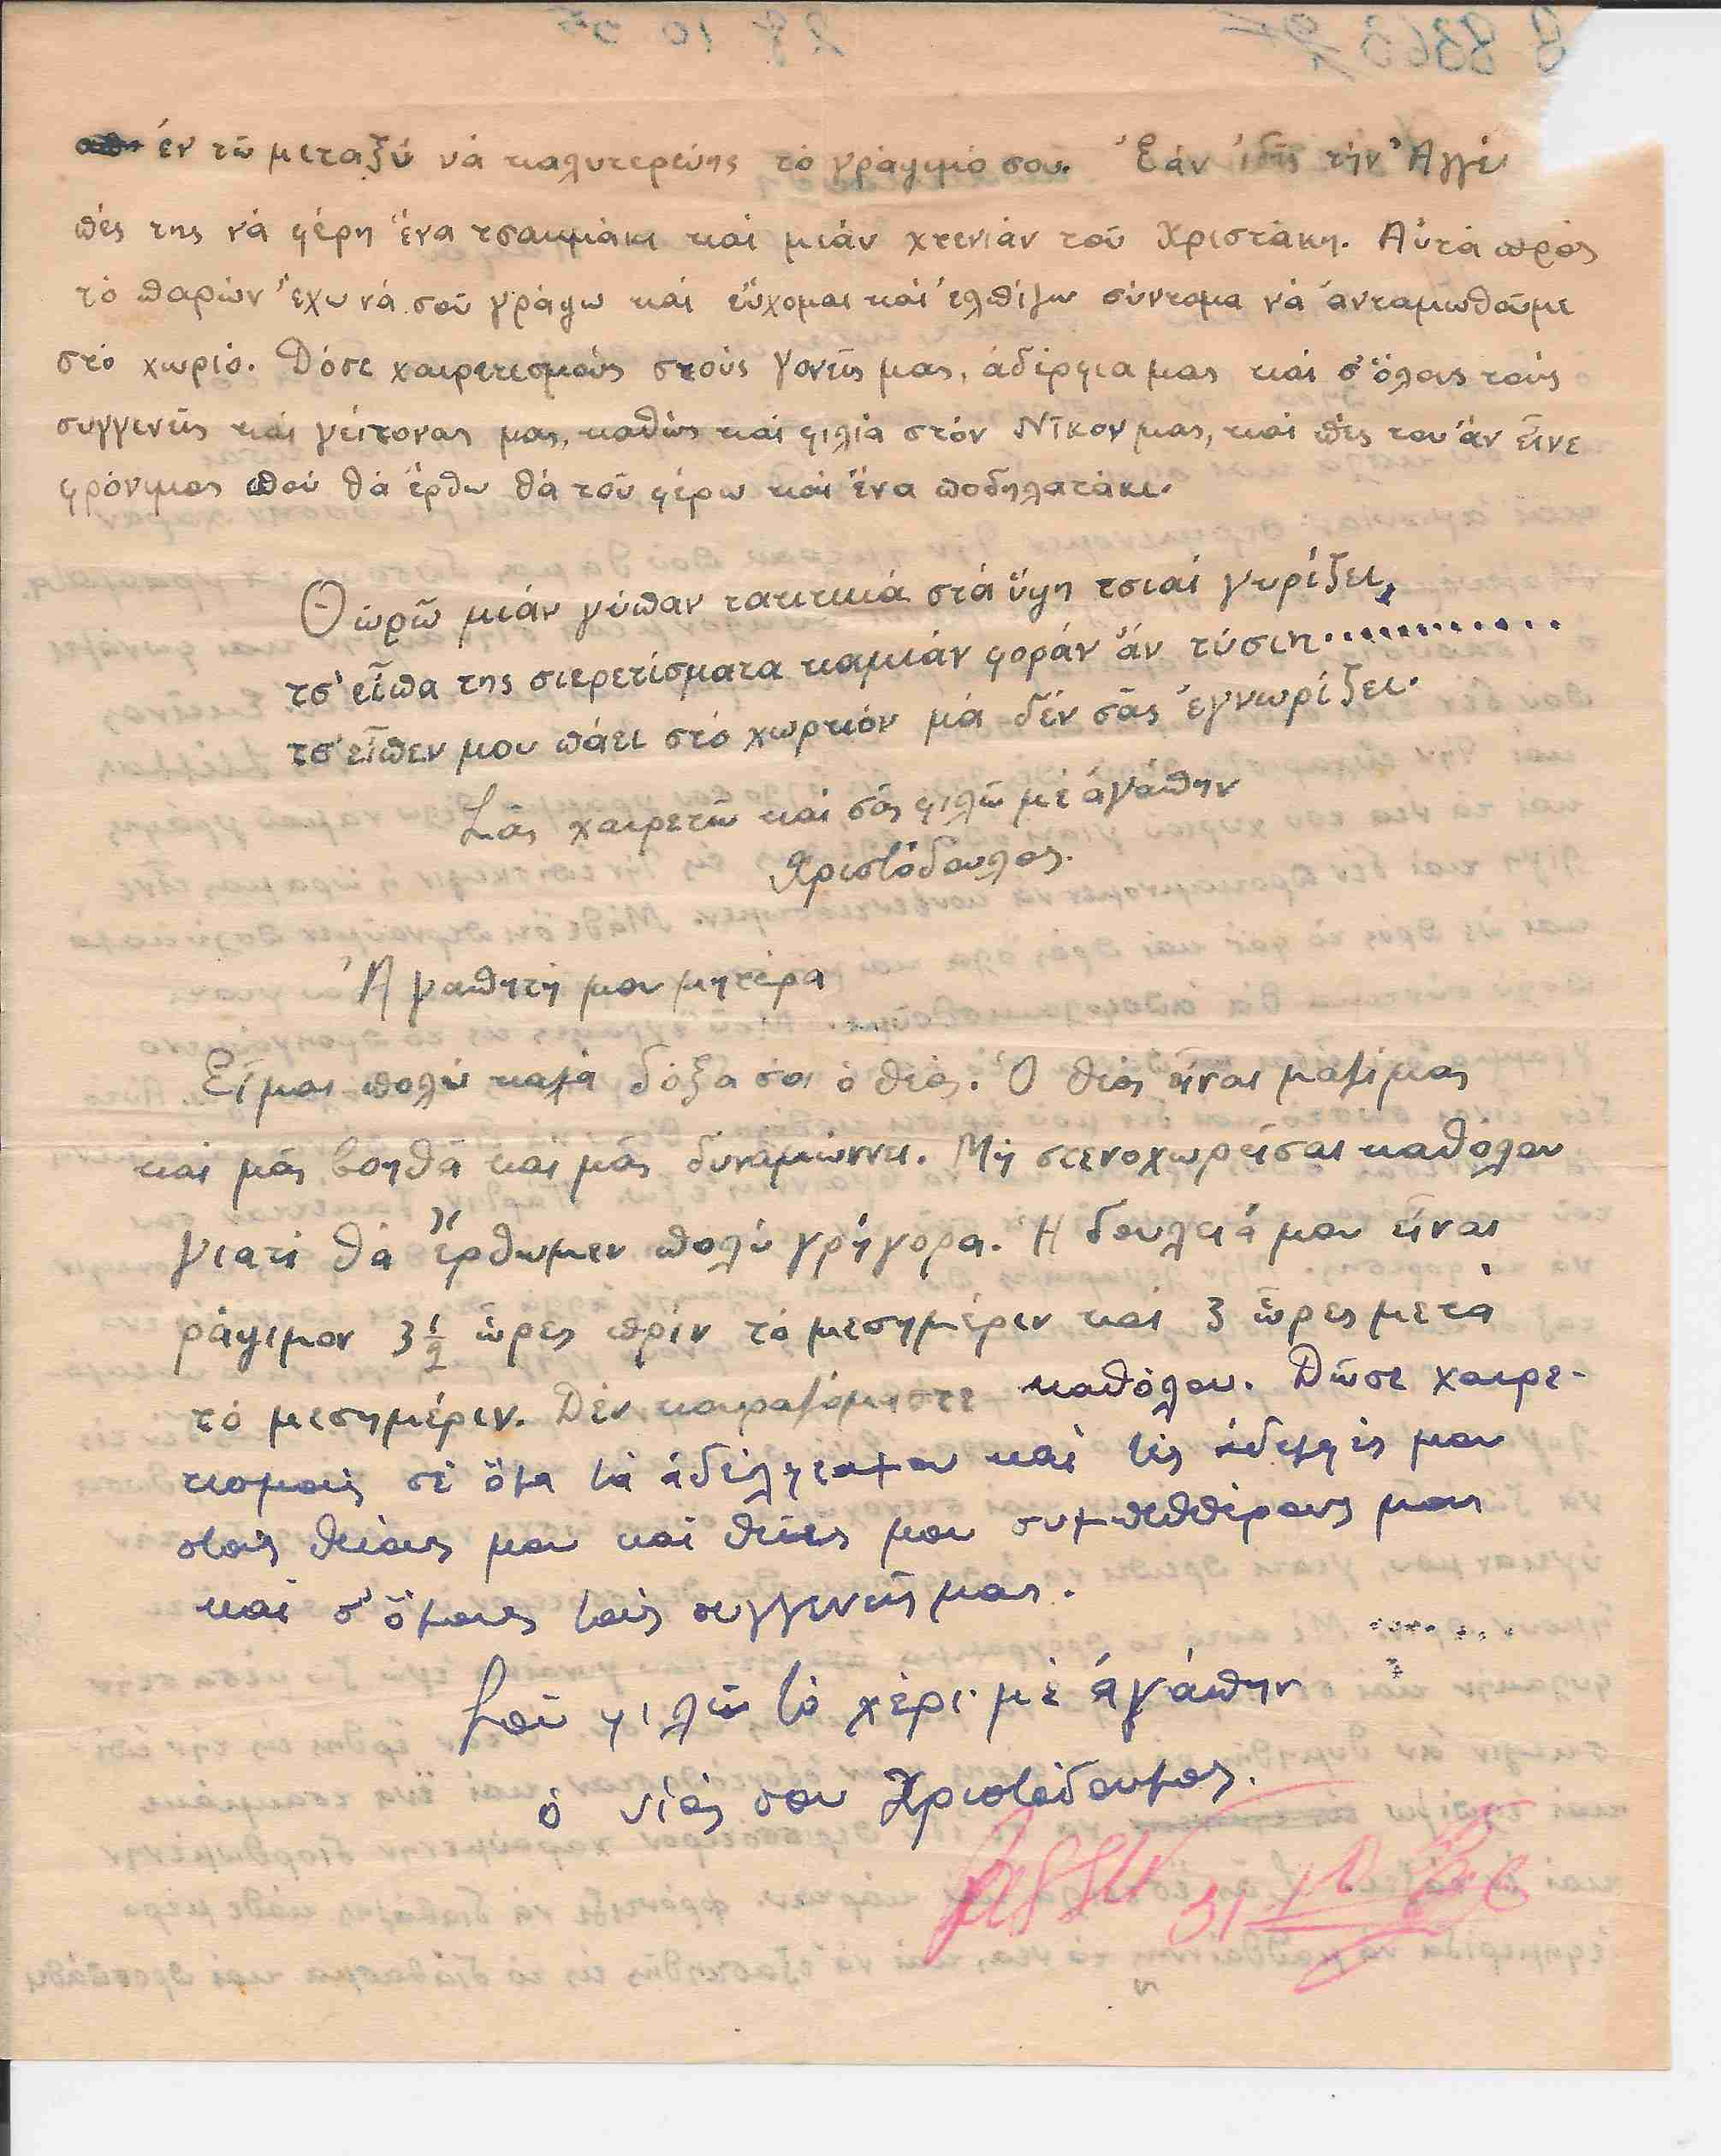 ἐν τῶ μεταξύ νά καλυτερεύης τό γράψιμό σου. Ἐάν ἰδῆς τήν Ἀγγέ
πές της νά φέρη ἕνα τσακμάκι καί μιάν χτενιάν τοῦ Χριστάκη. Αὐτά πρός
τό παρών ἔχω νά σοῦ γράψω καί εὔχομαι καί ἐλπίζω σύντομα νά ἀνταμωθοῦμε
στό χωριό. Δόσε χαιρετισμούς στούς γονεῖς μας, ἀδέρφια μας καί σ' ὅλους τούς
συγγενεῖς καί γείτονας μας, καθώς καί φιλία στόν Νῖκον μας, καί πές του ἄν εἶνε
φρόνιμος πού θά ἔρθω θά τοῦ φέρω καί ἕνα ποδηλατάκι.
Θωρῶ μιάν γύπαν τακτικά στά ὕψη τσιαί γυρίζει,
τσ' εἶπα της σιερετίσματα καμιάν φοράν ἄν τύσιη............
τσ' εἶπεν μου πάει στό χωρκόν μά δέν σᾶς ἐγνωρίζει.
Σᾶς χαιρετῶ καί σᾶς φιλῶ μέ ἀγάπην
Χριστόδουλος.
Ἀγαπητή μου μητέρα
Εἶμαι πολύ καλά δόξα σοι ὁ θεός. Ο θεός εἶναι μαζί μας
καί μᾶς βοηθᾶ καί μᾶς δυναμώννει. Μή στενοχωρεῖσαι καθόλου
γιατί θά ἔρθωμεν πολύ γρήγορα. Η δουλειά μου εἶναι
ράψιμον 3 1/2 ὧρες πρίν τό μεσημέρεν καί 3 ὧρες μετά
τό μεσημέρεν. Δέν κουραζόμαστε καθόλου. Δῶσε χαιρε-
τισμούς σέ ὅλα τά ἀδέλφια μου καί τίς ἀδελφές μου
στούς θείους μου καί θείες μου συμπεθθέρους μας
καί σ' ὅλους τούς συγγενεῖς μας.
Σοῦ φιλῶ τό χέρι μέ ἀγάπην
ὁ υἱός σου Χριστόδουλος.